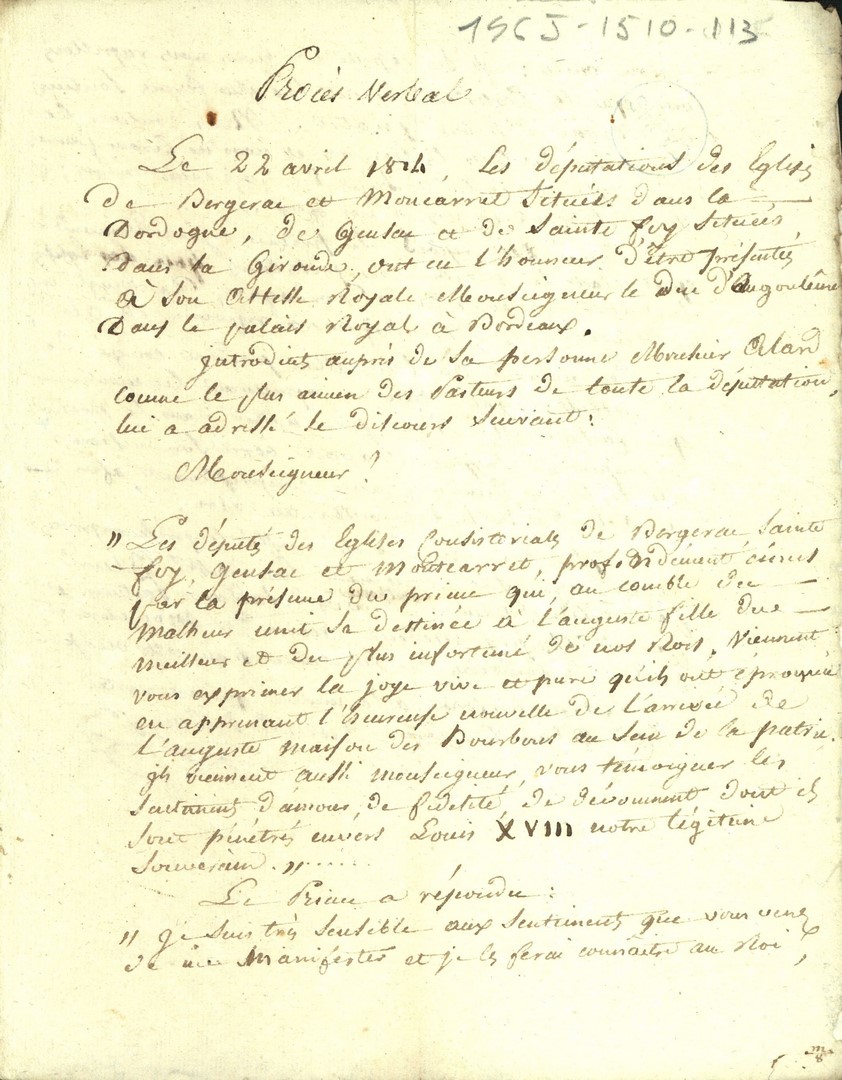 196J-1510-113
Procès Verbal
Le 22 avril 1814, les députations des Eglises
de Bergerac et Moncarret situées dans la
Dordogne, de Gensac et de Sainte foy situées,
dans la Gironde, ont eu l'honneur d'être présentés
à Son Altesse Royale Monseigneur le Duc d'Angoulême
Dans le palais Royal à Bordeaux.
introduits auprès de Sa personne Monsieur Alard
comme le plus ancien des Pasteurs de toute la députation,
lui a adressé le discours suivant:
Monseigneur!
" Les députés des Eglises Consistoriales de Bergerac, Sainte
foy, Gensac et Montcarret, profondément émus
par la présence du prince qui, au comble du
malheur unit sa destinée à l'auguste fille du
meilleur et du plus infortuné de nos Rois, viennent
vous exprimer la joye vive et pure qu'ils ont éprouvée
en apprenant l'heureuse nouvelle de l'arrivée de
l'auguste maison des Bourbons au sein de la patrie.
ils viennent aussi monseigneur, vous témoigner les
sentiments d'amour, de fidélité, de dévouement dont ils
sont pénétrés envers Louis XVIII notre légitime
Souverain. "......
Le Prince a répondu:
" je suis très sensible aux sentiments que vous venez
de me manifester et je les ferai connaître au Roi,